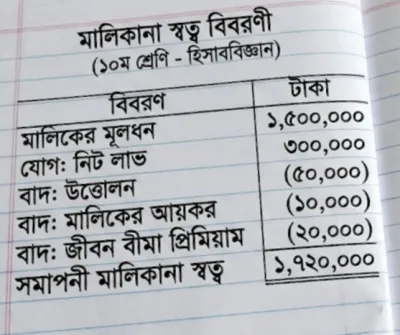 মালিকানা স্বত্ব বিবরণী
(১০ম শ্রেণি - হিসাববিজ্ঞান)
বিবরণ টাকা
মালিকের মূলধন ১,৫০০,০০০
যোগ: নিট লাভ ৩০০,০০০
বাদ: উত্তোলন (৫০,০০০)
বাদ: মালিকের আয়কর (১০,০০০)
বাদ: জীবন বীমা প্রিমিয়াম (২০,০০০)
সমাপনী মালিকানা স্বত্ব ১,৭২০,০০০